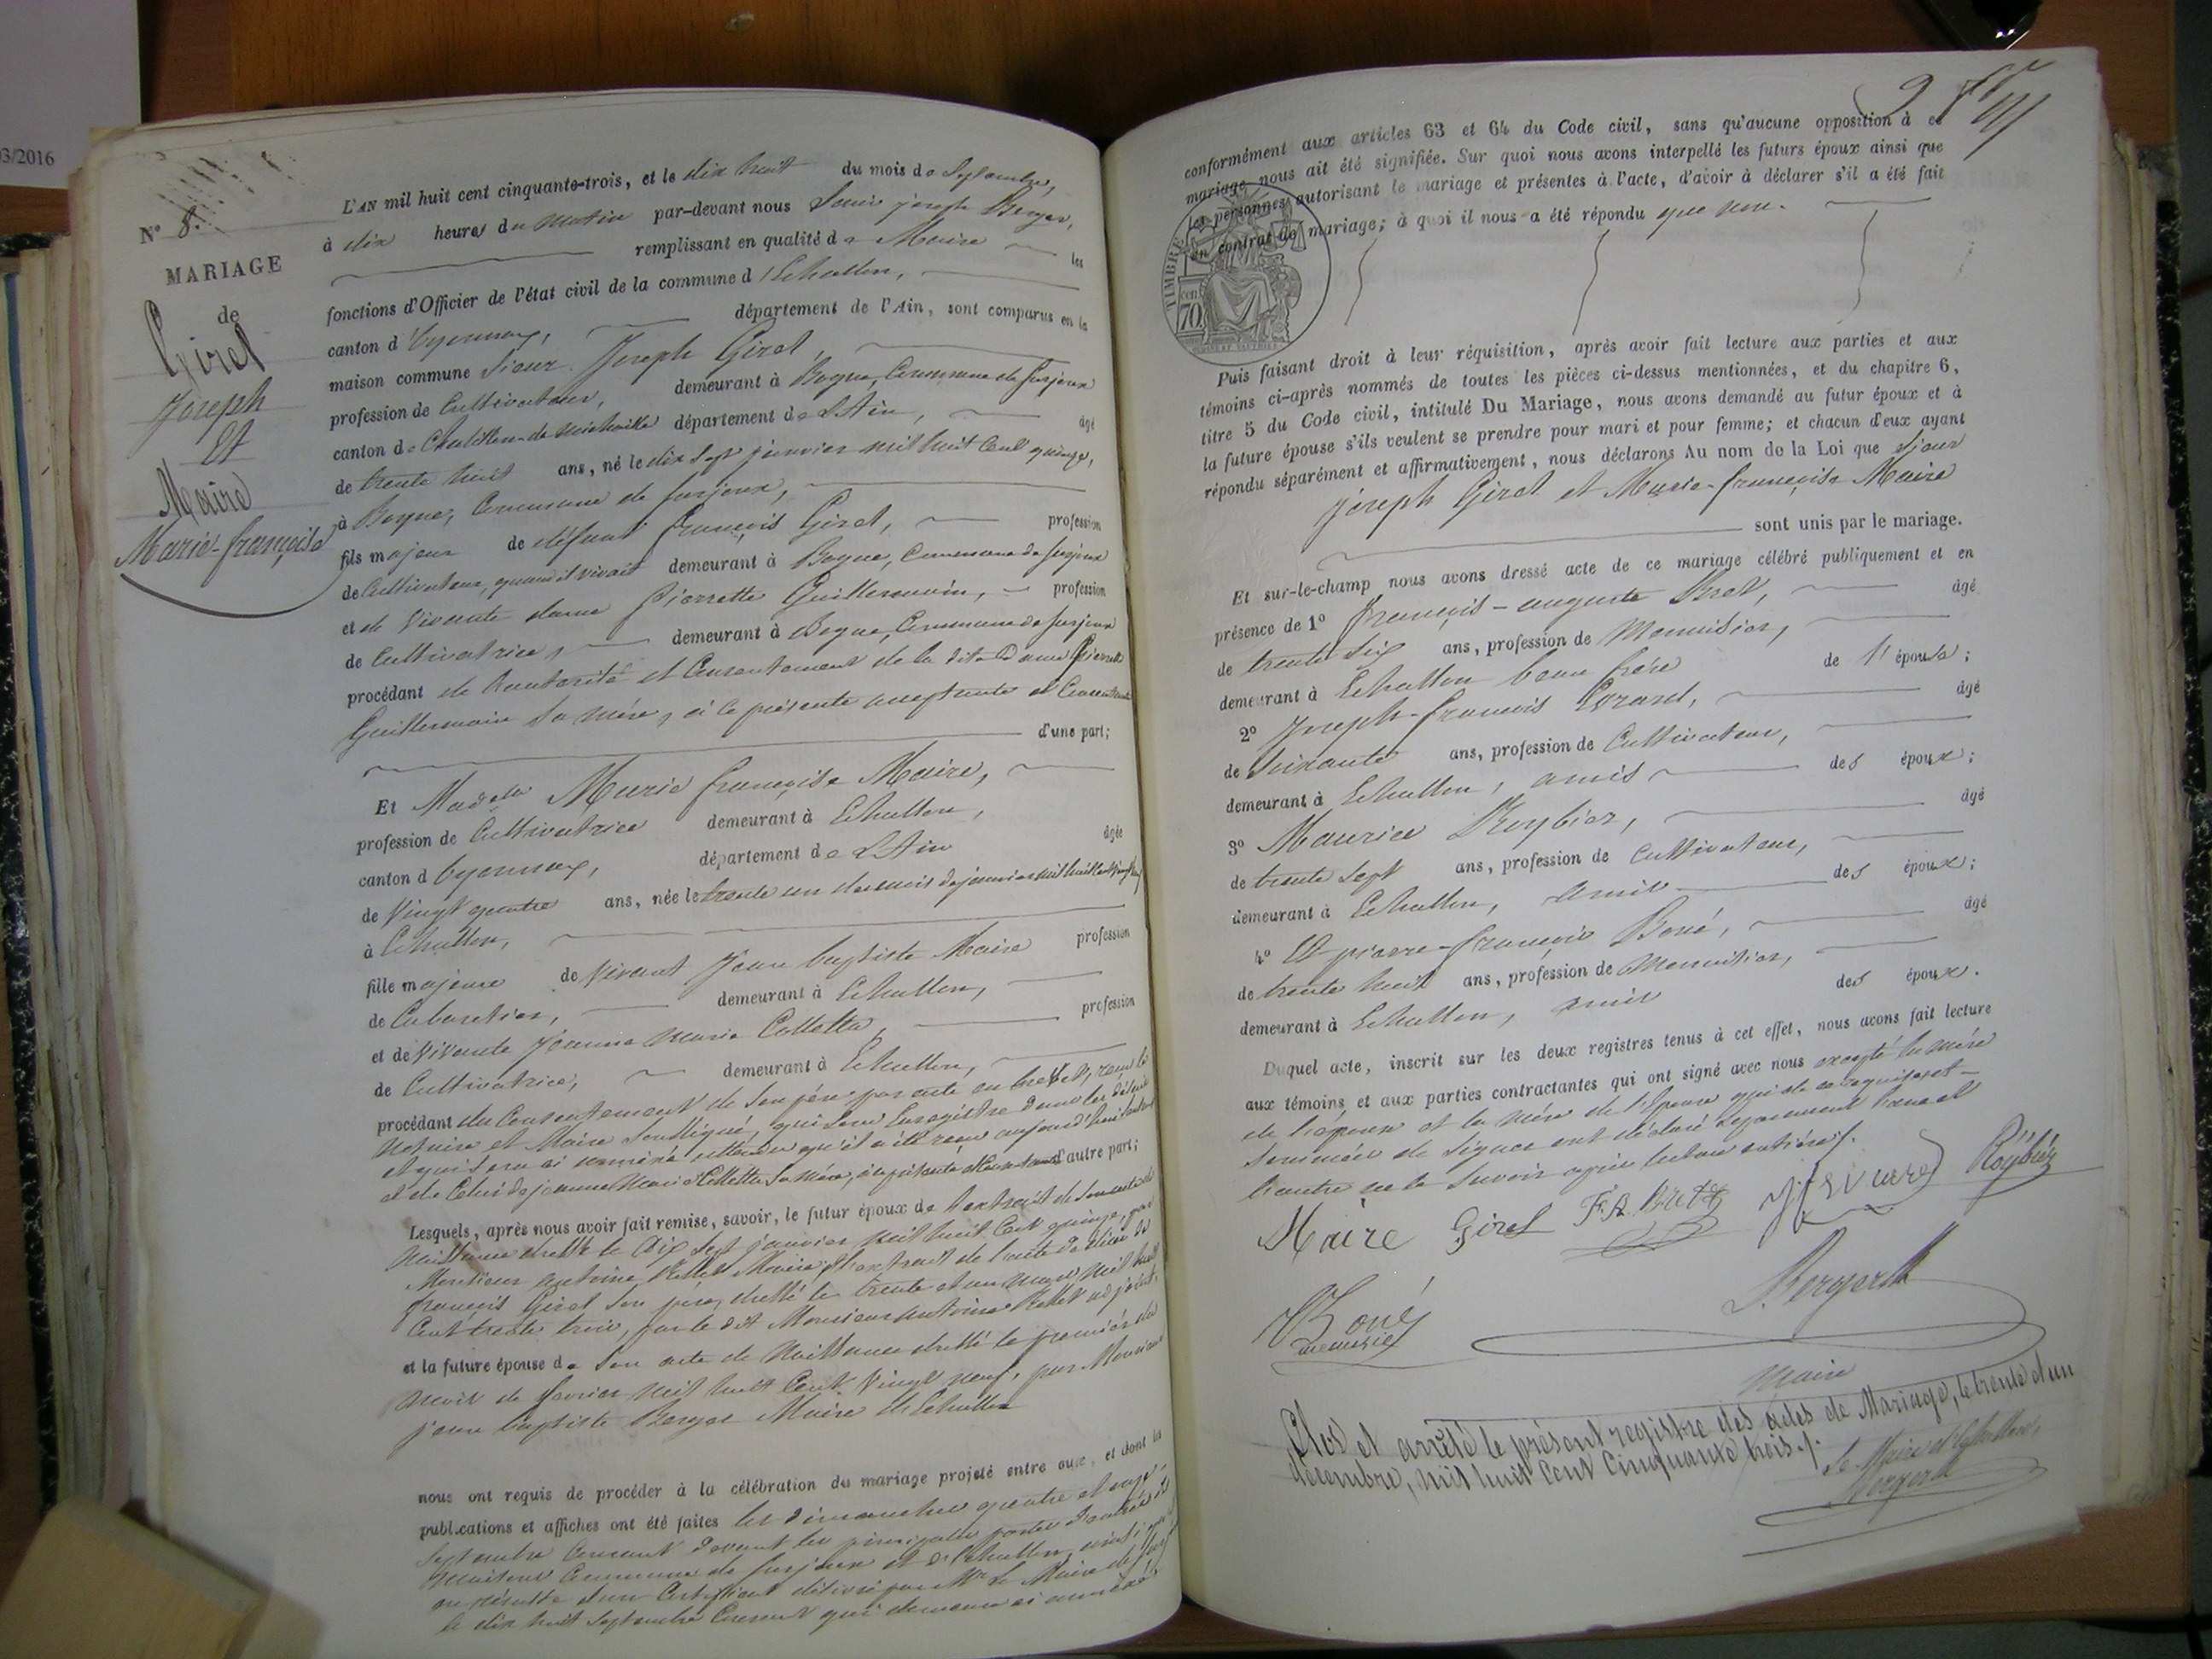 03/2016
N° 8.
MARIAGE
de
Girel
Joseph
Et
Maire
Marie-françoise
L'AN mil huit cent cinquante-trois, et le dix huit du mois de Septembre,
à dix heures du matin par-devant nous Louis joseph Berger,
remplissant en qualité de Maire les
fonctions d'Officier de l'état civil de la commune d'Echallon,
canton d'Oyonnax, département de l'Ain, sont comparus en la
maison commune Sieur Joseph Girel,
profession de Cultivateur, demeurant à Bogne, Commune de Surjoux
canton de Chatillon-de-Michaille département de L'Ain, âgé
de trente huit ans, né le dix sept janvier mil huit Cent quinze,
à Bogne, Commune de Surjoux,
fils majeur de défunt françois Girel, profession
de Cultivateur, quand il vivait demeurant à Bogne, Commune de Surjoux
et de Vivante dame Pierrette Guillermain, profession
de Cultivatrice, demeurant à Bogne, Commune de Surjoux
procédant de l'autorité et Consentement de la dite Dame Pierrette
Guillermain Sa mère, à ce présente acceptante et Consentante
d'une part;
Et Mad.elle Marie françoise Maire,
profession de Cultivatrice demeurant à Echallon,
canton d'Oyonnax, département de L'Ain âgée
de Vingt quatre ans, née le trente un du mois de janvier mil huit cent vingt neuf
à Echallon,
fille majeure de Vivant Jean baptiste Maire profession
de Cabaretier, demeurant à Echallon,
et de Vivante Jeanne Marie Collette, profession
de Cultivatrice, demeurant à Echallon,
procédant du Consentement de Son père par acte en brevet, reçu le
Notaire et Maire Soussigné, qui Sera Enregistré dans les délais
et qui Sera ci annexé attendu qu'il a été reçu aujourd'hui
et de Celui de jeanne Marie Collette Sa mère, à ce présente et Consentante d'autre part;
Lesquels, après nous avoir fait remise, savoir, le futur époux de l'extrait de Son acte de
Naissance dressé le dix Sept janvier mil huit Cent quinze, par
Monsieur antoine Maire, de l'extrait de l'acte de décès de
françois Girel Son père, dressé le trente et un mil huit
Cent trente trois, par le dit Monsieur antoine adjoint,
et la future épouse de Son acte de Naissance dressé le premier du
mois de février mil huit Cent Vingt neuf, par Monsieur
jean baptiste Berger Maire d'Echallon
nous ont requis de procéder à la célébration du mariage projeté entre eux, et dont les
publications et affiches ont été faites les dimanches quatre et onze
Septembre Courant devant les principales portes d'entrée des
maisons Commune de Surjoux et d'Echallon, ainsi que
en résulte d'un Certificat délivré par Mr Le Maire de
le dix huit Septembre Courant qui demeure ci annexé
9
conformément aux articles 63 et 64 du Code civil, sans qu'aucune opposition à ce
mariage nous ait été signifiée. Sur quoi nous avons interpellé les futurs époux ainsi que
les personnes autorisant le mariage et présentes à l'acte, d'avoir à déclarer s'il a été fait
un contrat de mariage; à quoi il nous a été répondu que non.
TIMBRE
cen
70
Puis faisant droit à leur réquisition, après avoir fait lecture aux parties et aux
témoins ci-après nommés de toutes les pièces ci-dessus mentionnées, et du chapitre 6,
titre 5 du Code civil, intitulé Du Mariage, nous avons demandé au futur époux et à
la future épouse s'ils veulent se prendre pour mari et pour femme; et chacun d'eux ayant
répondu séparément et affirmativement, nous déclarons Au nom de la Loi que Sieur
Joseph Girel et Marie-françoise Maire
sont unis par le mariage.
Et sur-le-champ nous avons dressé acte de ce mariage célébré publiquement et en
présence de 1° françois-auguste Bret, âgé
de trente Six ans, profession de Menuisier,
demeurant à Echallon beau frère de l'épouse;
2° Joseph-françois âgé
de Soixante ans, profession de Cultivateur,
demeurant à Echallon, amis des époux;
3° Maurice Roybier, âgé
de trente Sept ans, profession de Cultivateur,
demeurant à Echallon, amis des époux;
4° Et pierre-françois Boné, âgé
de trente huit ans, profession de Menuisier,
demeurant à Echallon, amis des époux.
Duquel acte, inscrit sur les deux registres tenus à cet effet, nous avons fait lecture
aux témoins et aux parties contractantes qui ont signé avec nous excepté la mère
de l'époux et la mère de l'Epouse qui de ce requises et
Sommées de Signer ont déclaré Séparement l'une et
l'autre ne le Savoir après lecture entière./.
Maire Girel F. A. Bret Roybier
Boné
menuisier
Berger
Maire
Clos et arrêté le présent registre des actes de Mariage, le trente et un
décembre, mil huit Cent Cinquante trois./.
Le Maire d'Echallon,
Berger